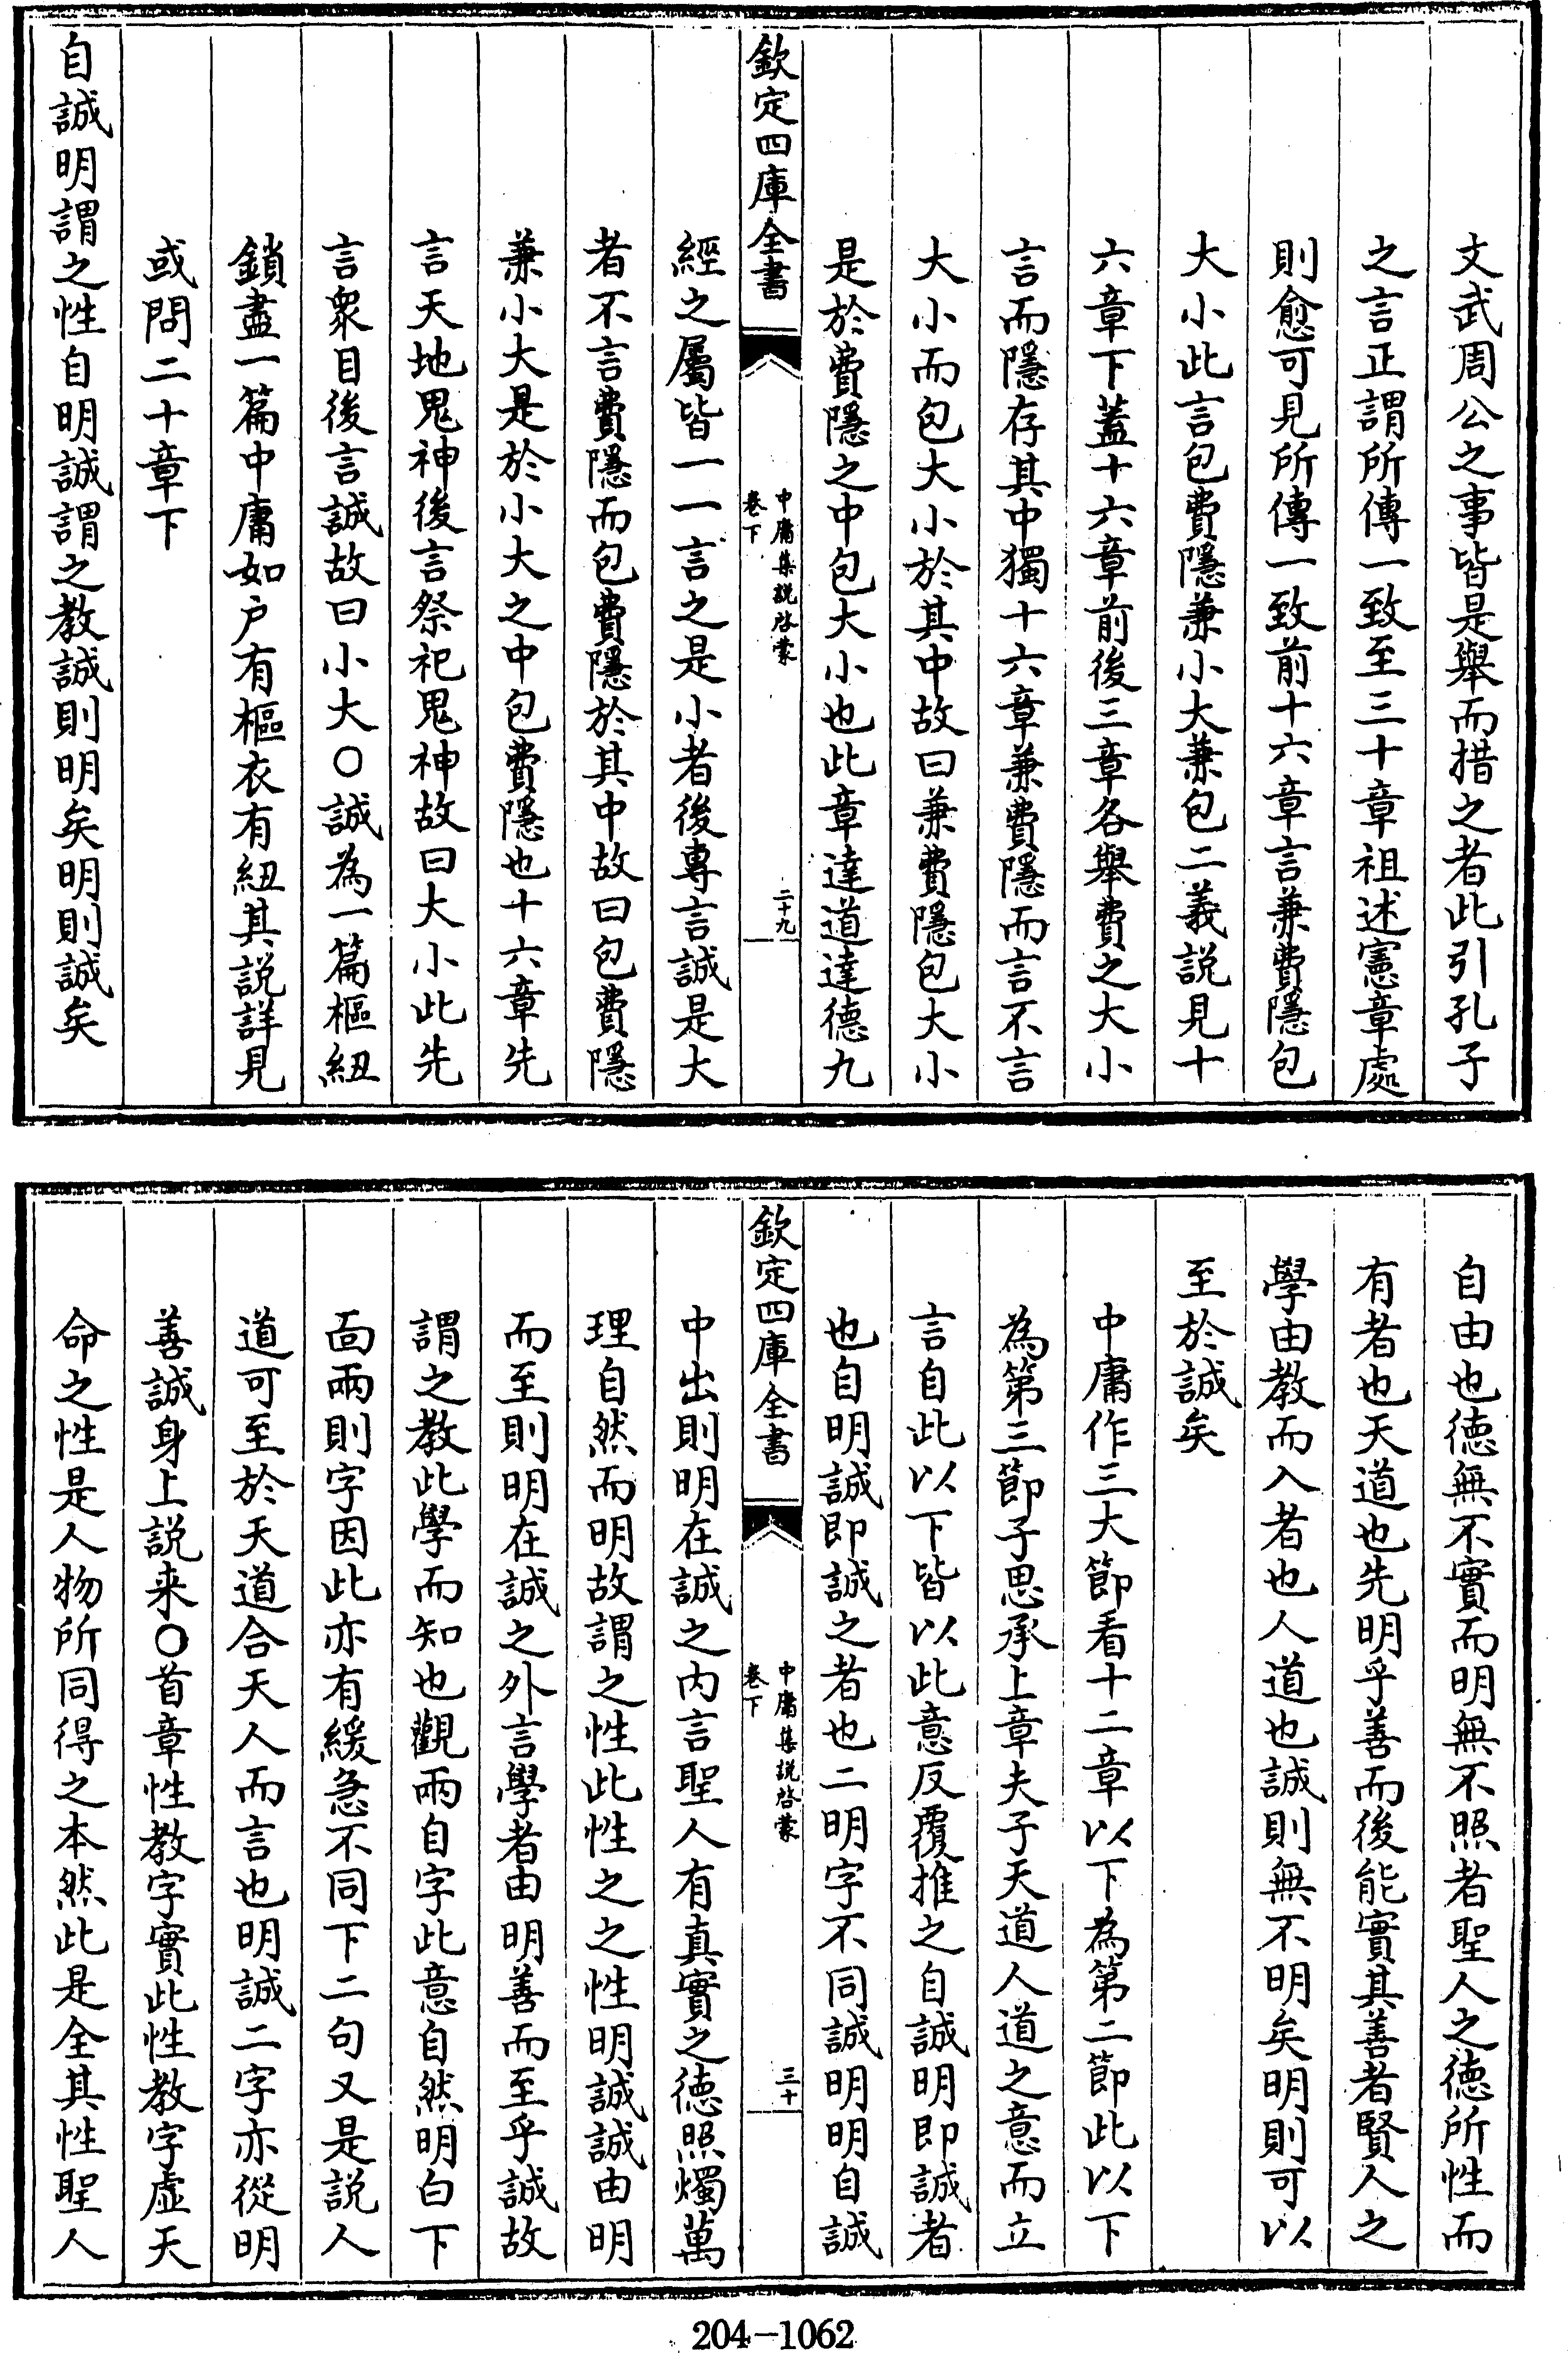 文武周公之事皆是舉而措之者此引孔子
之言正謂所傳一致至三十章祖述憲章處
則愈可見所傳一致前十六章言兼費隱包
大小此言包費隱兼小大兼包二義說見十
六章下蓋十六章前後三章各舉費之大小
言而隱存其中獨十六章兼費隱而言不言
大小而包大小於其中故曰兼費隱包大小
是於費隱之中包大小也此章達道達德九
欽定四庫全書
中庸集說啓蒙
卷下
二十九
經之屬皆一一言之是小者後專言誠是大
者不言費隱而包費隱於其中故曰包費隱
兼小大是於小大之中包費隱也十六章先
言天地鬼神後言祭祀鬼神故曰大小此先
言衆目後言誠故曰小大○誠為一篇樞紐
鎖盡一篇中庸如户有樞衣有紐其說詳見
或問二十章下
自誠明謂之性自明誠謂之教誠則明矣明則誠矣
自由也德無不實而明無不照者聖人之德所性而
有者也天道也先明乎善而後能實其善者賢人之
學由教而入者也人道也誠則無不明矣明則可以
至於誠矣
中庸作三大節看十二章以下為第二節此以下
為第三節子思承上章夫子天道人道之意而立
言自此以下皆以此意反覆推之自誠明即誠者
也自明誠即誠之者也二明字不同誠明明自誠
欽定四庫全書
中庸集說啓蒙
卷下
三十
中出則明在誠之内言聖人有真實之德照燭萬
理自然而明故謂之性此性之之性明誠誠由明
而至則明在誠之外言學者由明善而至乎誠故
謂之教此學而知也觀兩自字此意自然明白下
面兩則字因此亦有緩急不同下二句又是說人
道可至於天道合天人而言也明誠二字亦從明
善誠身上說来○首章性教字實此性教字虛天
命之性是人物所同得之本然此是全其性聖人
204-1062